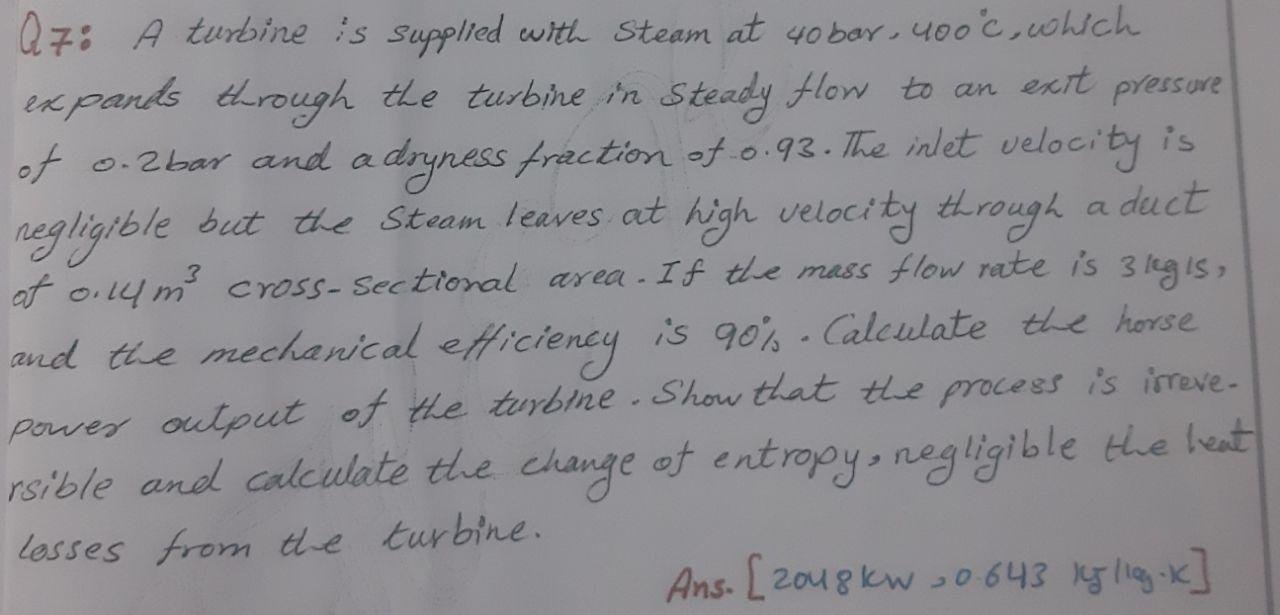 Q7: A turbine is supplied with Steam at 40bar, 400°c, which
expands through the turbine in Steady flow to an exit pressure
of 0.2bar and a dryness fraction of 0.93. The inlet velocity is
negligible but the Steam leaves at high velocity through a duct
of 0.14m³ cross-sectional area. If the mass flow rate is 3kg/s,
and the mechanical efficiency is 90%. Calculate the horse
power output of the turbine. Show that the process is irreve-
rsible and calculate the change of entropy, negligible the heat
losses from the turbine.
Ans. [2048kw, 0.643 kJ/kg.K]